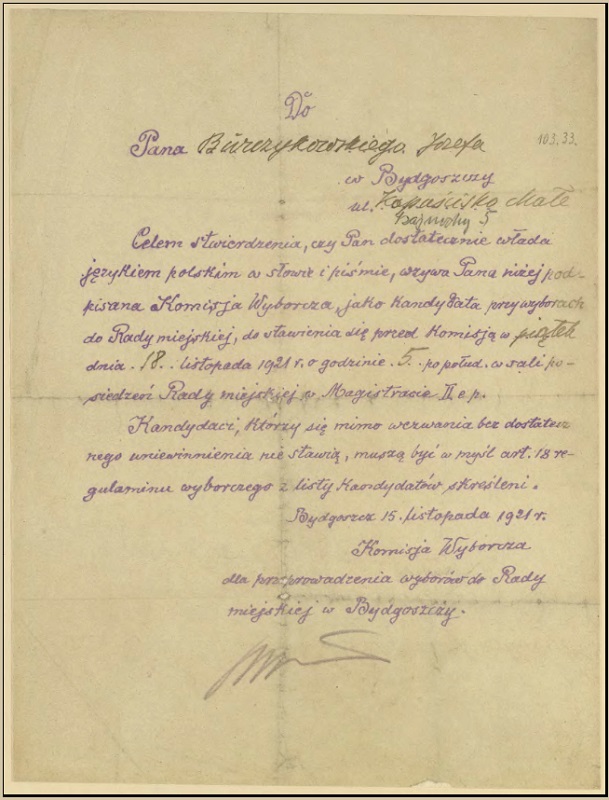 Do
Pana Burczykowskiego Józefa 103.33.
w Bydgoszczy
ul. Kapuściska Małe
5
Celem stwierdzenia, czy Pan dostatecznie włada
językiem polskim w słowie i piśmie, wzywa Pana niżej pod-
pisana Komisja Wyborcza, jako kandydata przy wyborach
do Rady miejskiej, do stawienia się przed Komisją w piątek
dnia 18. listopada 1921 r. o godzinie 5. po połud. w sali po-
siedzeń Rady miejskiej w Magistracie II. e p.
Kandydaci, którzy się mimo wezwania bez dostatecz
nego uniewinnienia nie stawią, muszą być w myśl art. 18 re-
gulaminu wyborczego z listy kandydatów skreśleni.
Bydgoszcz 15. listopada 1921 r.
Komisja Wyborcza
dla przeprowadzenia wyborów do Rady
miejskiej w Bydgoszczy.